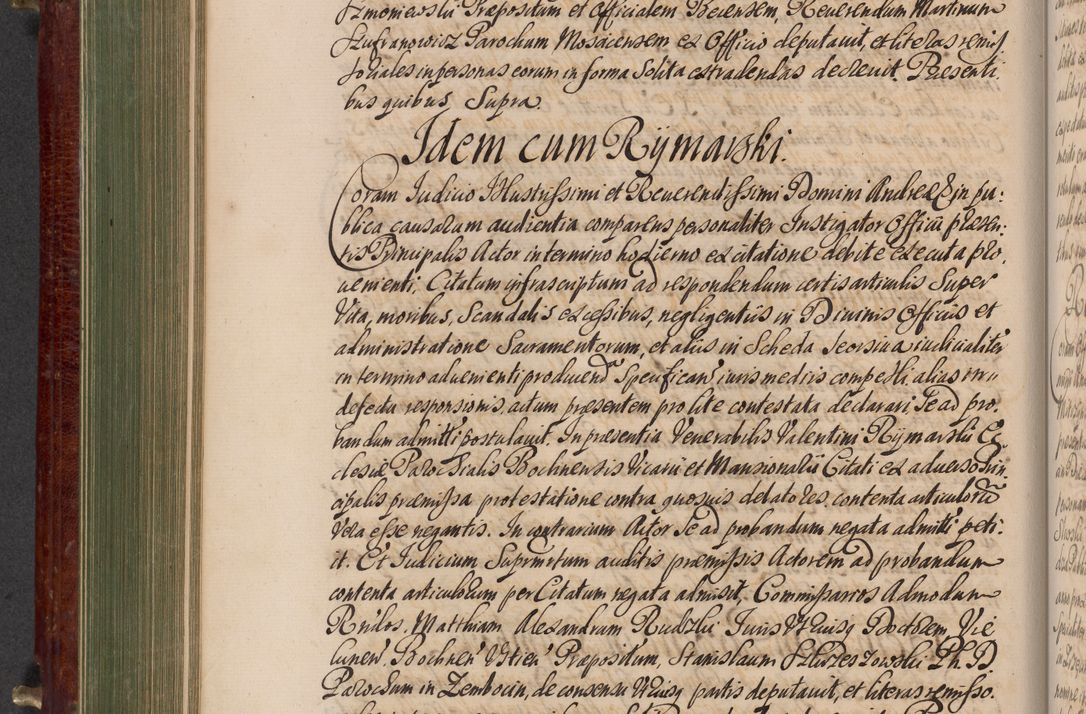 Szmoniewski Præpositum et Officialem Becensem, Reuerendum Martinum
Szufranowicz Parochum Mosacensem ex Officio deputauit, et literas remiss
foriales in personas eorum in forma Solita extradendas decreuit. Præsenti
bus quibus Supra.
Idem cum Rÿmarski.
Coram Iudicio Illustrissimi et Reuerendissimi Domini Andreæ &c in pu:
blica causarum audientia comparens personaliter Instigator Officii præsen:
tis Principalis Actor in termino hodierno ex citatione debite executa pro
uenienti, Citatum infrascriptum ad respondendum certis articulis Super
Vita, moribus, Scandalis excessibus, negligentiis in Diuinis Officiis et
administratione Sacramentorum, et aliis in Scheda Seorsiua iudicialiter
in termino aduenienti producend Specifican iuris mediis compelli, alias in
defectu responsionis, actum præsentem pro lite contestata declarari, Se ad pro.
bandum admitti postulauit. In præsentia Venerabilis Valentini Rÿmarski Ec
clesiæ Parochialis Bochnensis Vicarii et Mansionarii Citati ex aduerso Prin
cipalis præmissa protestatione contra quosuis delatores, contenta articulorum
Vera esse negantis. In contrarium Actor Se ad probandum negata admitti peti:
it. Et Iudicium Supremum auditis præmissis Actorem ad probandum
contenta articulorum per Citatum negata admisit. Commissarios Admodum
Rndos. Matthiam Alexandrum Rudzki Iuris Vtriusq Doctorem, Vie
lunen' Bochnen' &tten' Præpositum, Stanislaum Ph. D.
Parochum in Zembocin, de consensu Vtriusq partis deputauit, et literas remisso.